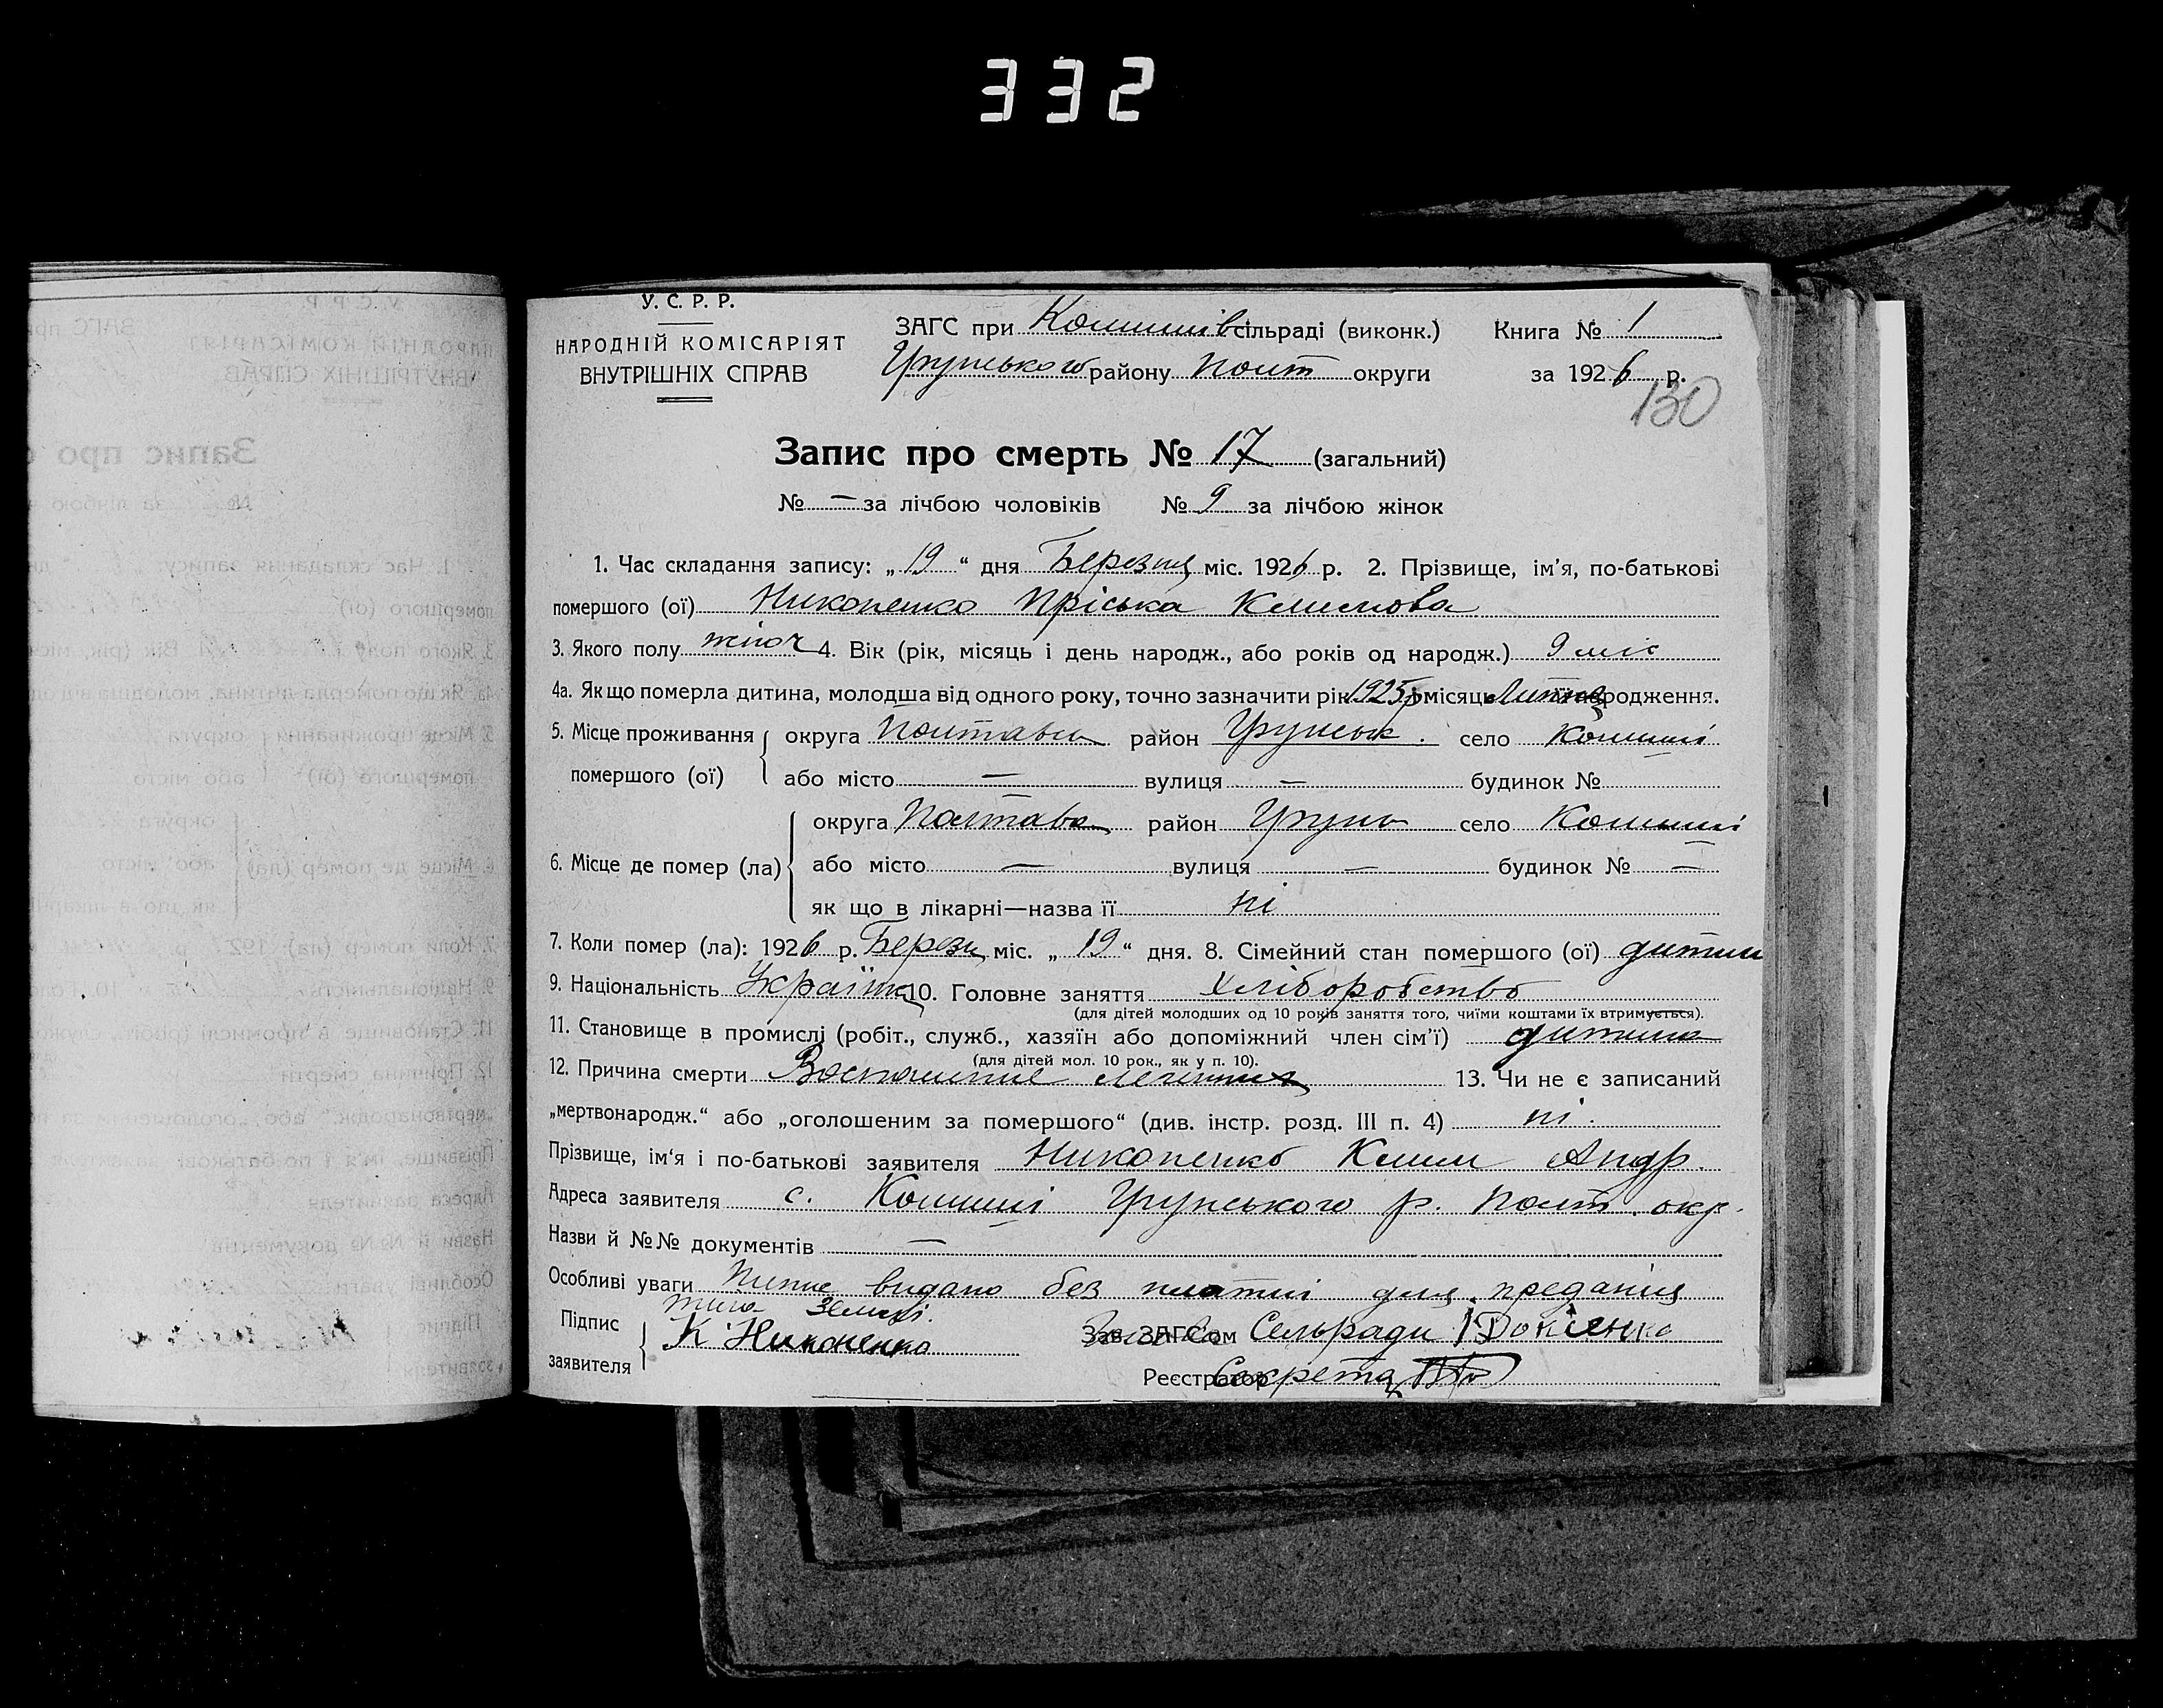 332
У. С. Р. Р.
НАРОДНІЙ КОМІСАРІЯТ
ВНУТРІШНІХ СПРАВ
ЗАГС при сільраді (виконк.) Книга № 1
Грунського району Полт округи за 1926 р.
130
Запис про смерть № 17 (загальний)
№ — за лічбою чоловіків № 9 за лічбою жінок
1. Час складання запису: „19“ дня Березня міс. 1926 р. 2. Прізвище, ім’я, по-батькові
помершого (ої) Никоненко Пріська Климова
3. Якого полу жіноч 4. Вік (рік, місяць і день народж., або років од народж.) 9 міс
4а. Як що померла дитина, молодша від одного року, точно зазначити рік 1925 р місяць Липня народження.
5. Місце проживання помершого (ої) { округа Полтавсь район Грунськ. село
або місто — вулиця — будинок №
6. Місце де помер (ла) { округа Полтавсь район Грунь село
або місто — вулиця — будинок № —
як що в лікарні—назва її ні
7. Коли помер (ла): 1926 р. Березн міс. „19“ дня. 8. Сімейний стан помершого (ої) дитин
9. Національність Українц 10. Головне заняття Хліборобство
(для дітей молодших од 10 років заняття того, чиїми коштами їх втримується).
11. Становище в промислі (робіт., служб., хазяїн або допоміжний член сім’ї) дитина
(для дітей мол. 10 рок., як у п. 10).
12. Причина смерти 13. Чи не є записаний
„мертвонародж.“ або „оголошеним за помершого“ (див. інстр. розд. III п. 4) ні.
Прізвище, ім‘я і по-батькові заявителя Никоненко Клим Андр.
Адреса заявителя с. Грунського р. Полт. окр.
Назви й №№ документів —
Особливі уваги видано без платні для преданія
тила землі.
Підпис заявителя } К Никоненко
Зав. ЗАГС’ом Сельради
Реєстратор Секретар